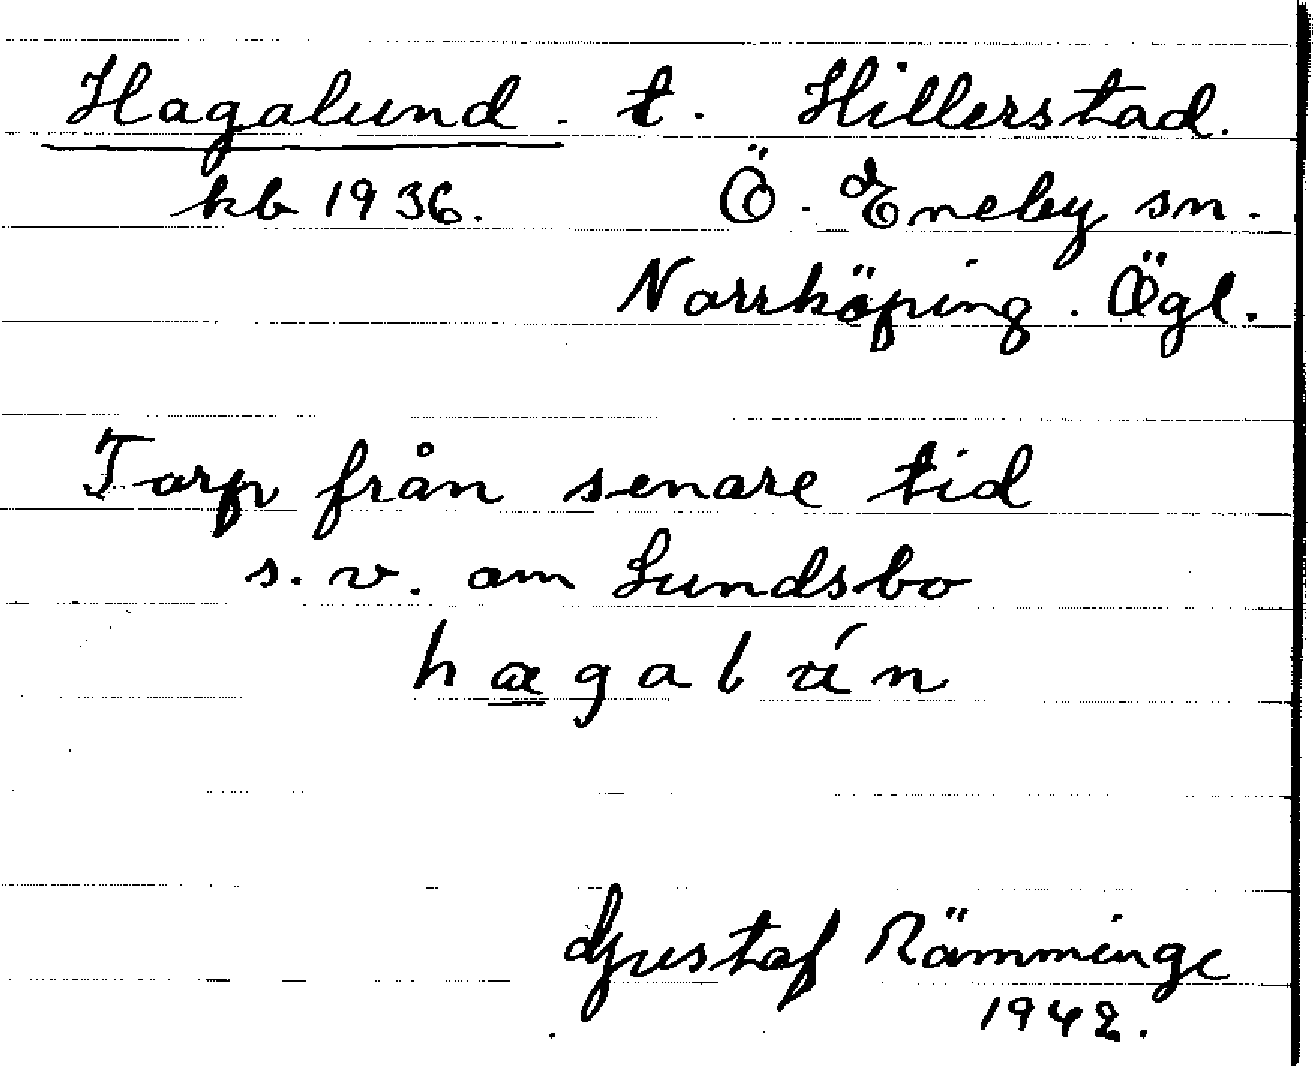 Hagalund. t. Hillerstad.
kb 1936. Ö. Eneby sn.
Norrköping. Ögl.
Torp från senare tid
s.v. om Lundsbo
Gustaf Rämminge
1942.